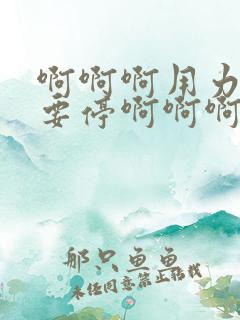 啊啊啊用力
要停啊啊啊
那只鱼鱼
未经同意禁止转载